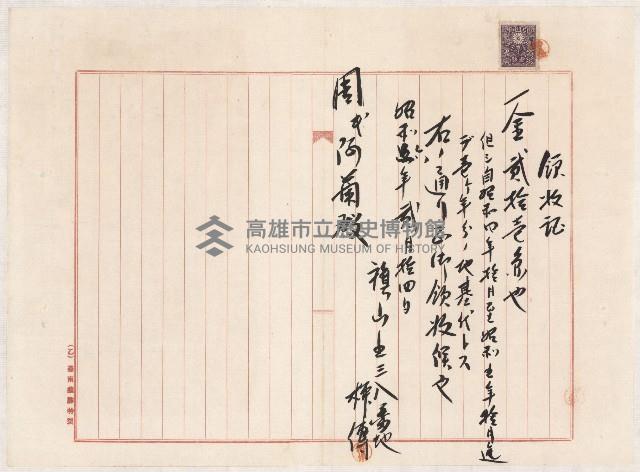 領收証
一金貳拾壱円也
但シ自昭和四年拾月至昭和五年拾月迄
デ壱ケ年分ノ地基代トス
右ノ通リ正ニ御領收候也
昭和 年貳月拾四日
旗山 三八番地
周氏阿蘭殿
高雄市立歷史博物館
KAOHSIUNG MUSEUM OF HISTORY